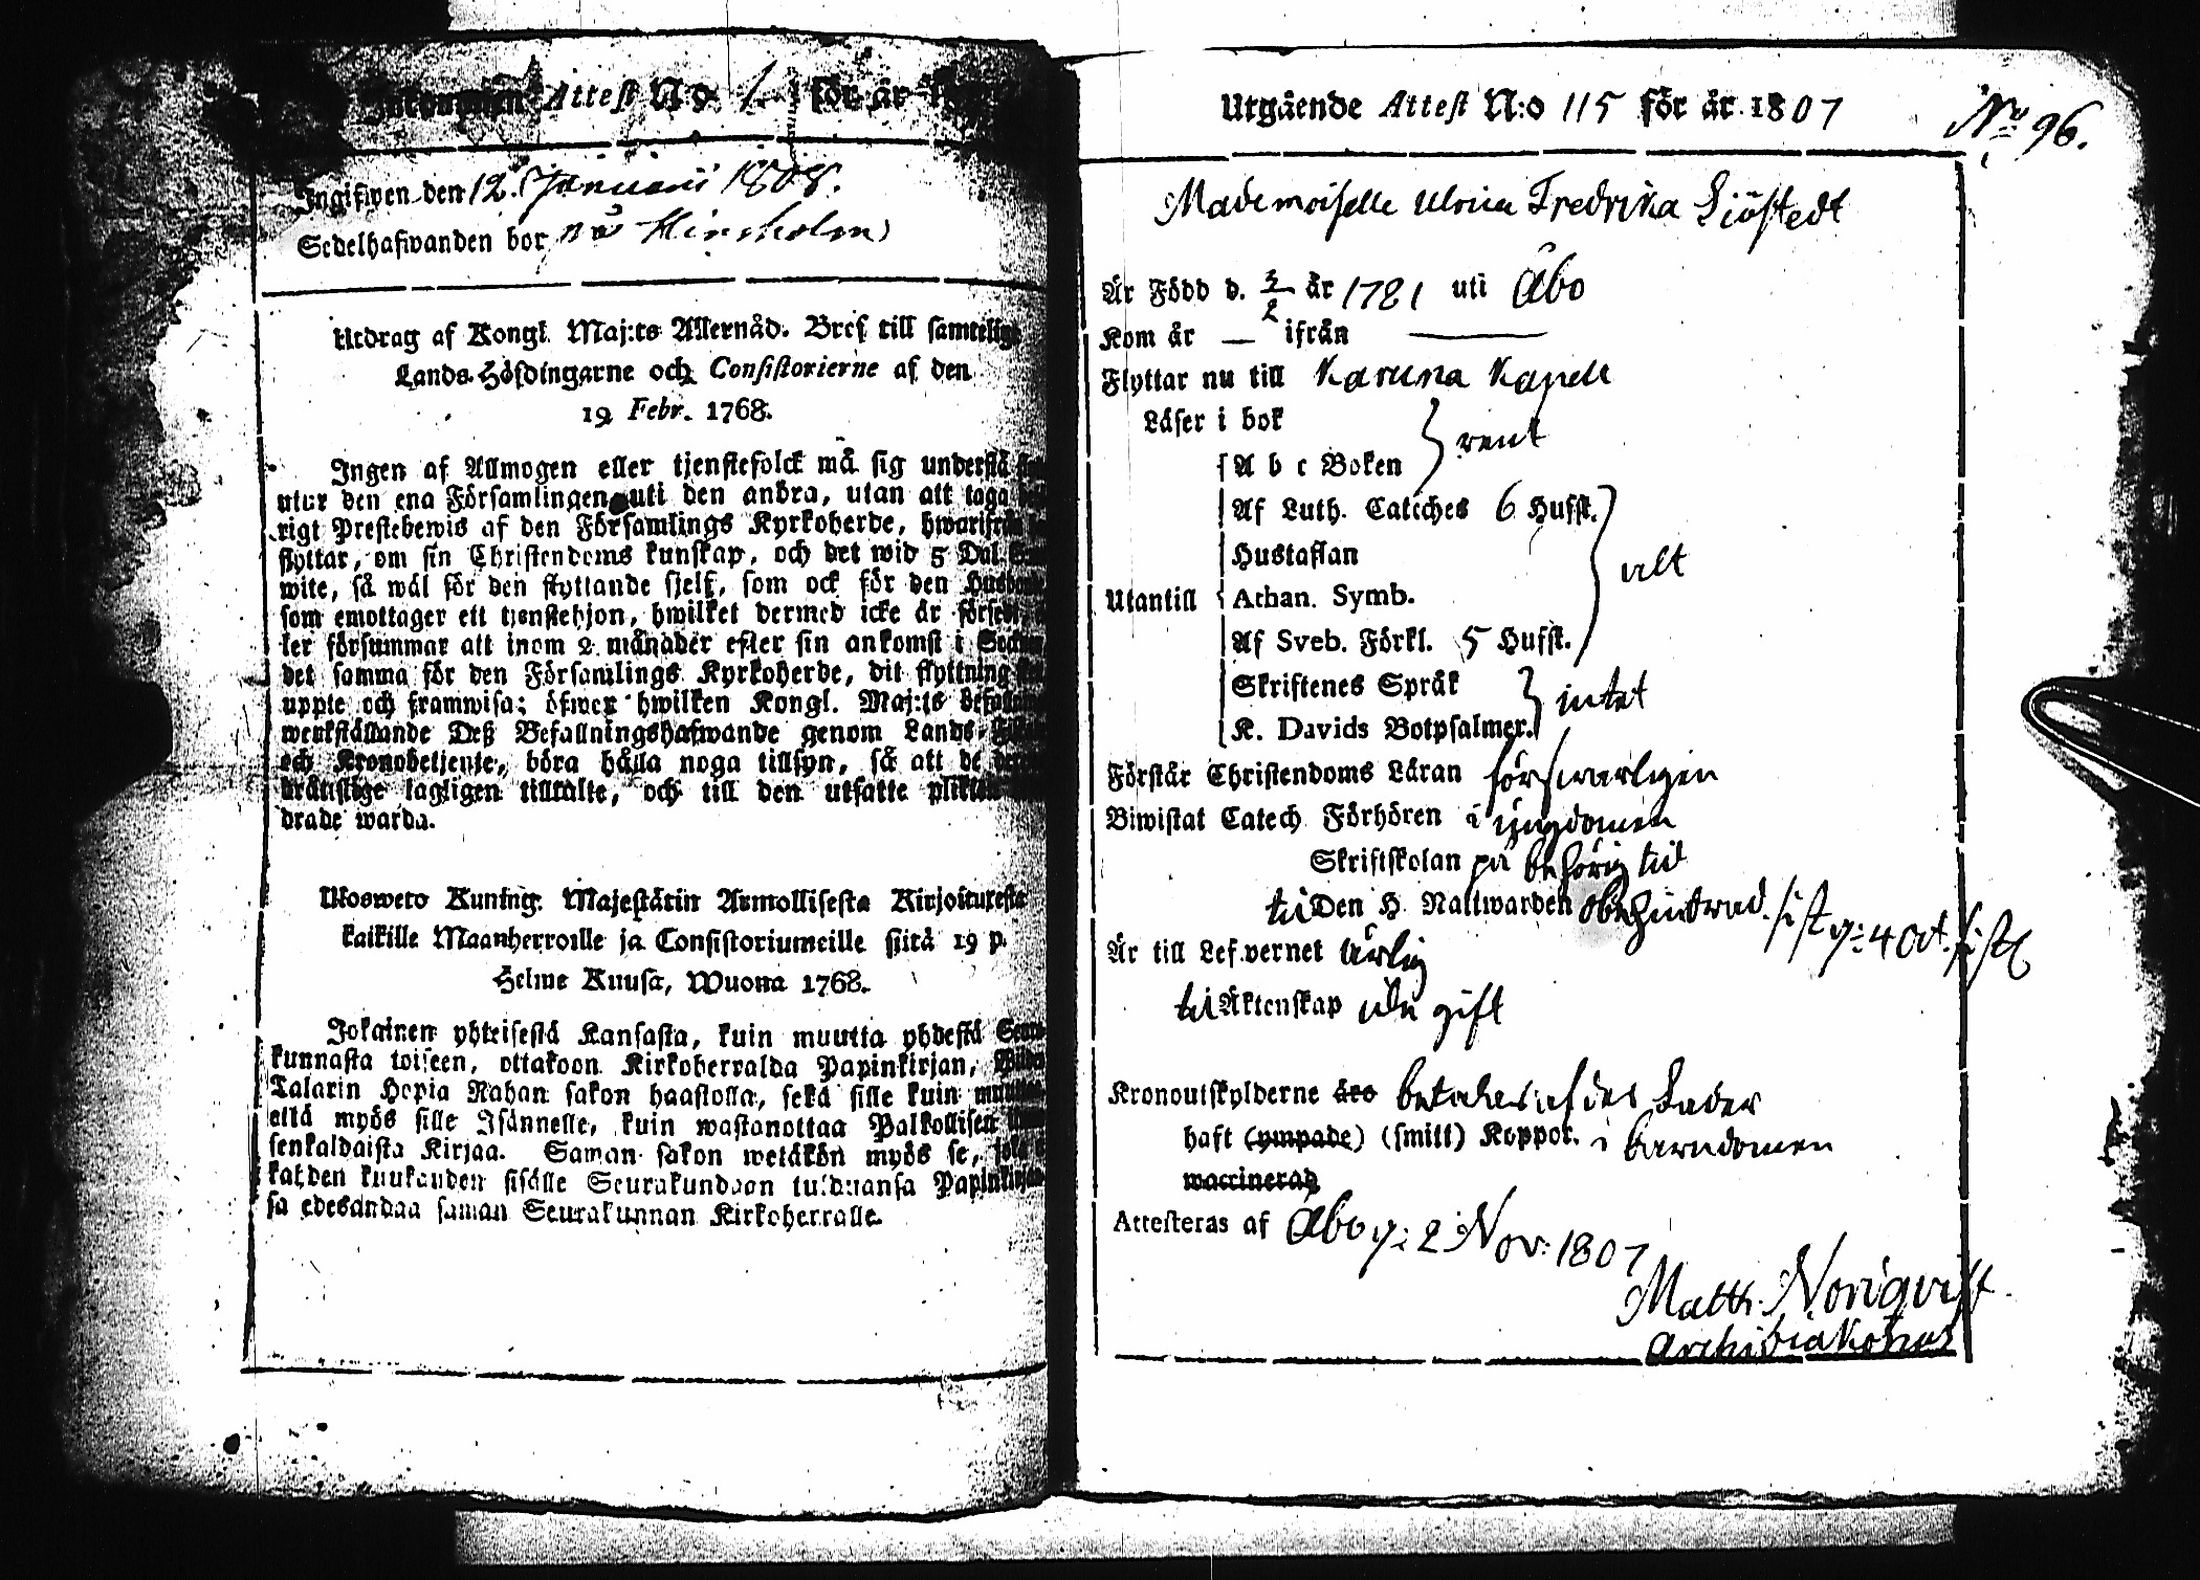 Inkommen Attest N:o 1 för år
Ingifwen den 12. Januarii 1808.
Sedelhafwanden bor på
Utdrag af Kongl. Maj:ts Allernåd. Bref till samtelige
Lands-Höfdingarne och Consistorierne af den
19 Febr. 1768.
Ingen af Allmogen eller tjenstefolck må sig understå
utur den ena Församlingen uti den andra, utan att taga
rigt Prestebewis af den Församlings Kyrkoherde, hwarifrån
flyttar, om sin Christendoms kunskap, och det wid 5 Dal.
wite, så wäl för den flyttande sjelf, som ock för den
som emottager ett tjenstehjon, hwilket dermed icke är försedt,
ler försummar att inom 2 månader efter sin ankomst i
det samma för den Församlings Kyrkoherde, dit flyttning
uppte och framwisa; öfwer hwilken Kongl. Maj:ts
werkställande Deß Befallningshafwande genom Lands-
och Kronobetjente, böra hålla noga tillsyn, så att de
brättslige lagligen tilltalte, och till den utsatte
drade warda.
Uloswero Kuning. Majestätin Armollisesta Kirjoituxesta
kaikille Maanherroille ja Consistoriumeille siitä 19 p.
Helme Kuusa, Wuonna 1768.
Jokainen yhteisestä Kansasta, kuin muutta yhdestä
kunnasta toiseen, ottakoon Kirkoherralda Papinkirjan,
Talarin Hopia Rahan sakon haastolla, sekä sille kuin
että myös sille Isännelle, kuin wastanottaa Palkollisen
senkaldaista Kirjaa. Saman sakon wetäkön myös se,
kahden kuukauden sisälle Seurakundaan tulduansa
sa edesandaa saman Seurakunnan Kirkoherralle.
Utgående Attest N:o 115 för år 1807
No 96.
Mademoiselle Ulrica Fredrika Sjöstedt
Är Född d. 3/2 år 1781 uti Åbo
Kom år — ifrån —
Flyttar nu till Karuna Kapell
Läser i bok
A b c Boken } rent
Af Luth. Catèches 6 Hufst.
Hustaflan
Utantill Athan. Symb. } alt
Af Sveb. Förkl. 5 Hufst.
Skriftenes Språk
K. Davids Botpsalmer. } intet
Förstår Christendoms Läran försvarligen
Biwistat Catech Förhören i ungdomen
Skriftskolan på behörig tid
till Den H. Nattwarden obehindrad. sist d: 4 Oct. sistl
Är till Lefvernet ärlig
till Äktenskap ej gift
Kronoutskylderne äro betalas af des Fader
haft (ympade) (smitt) Koppor. i barndomen
waccinerad
Attesteras af Åbo d: 2 Nov: 1807
Matth. Noriqvist
Archidiakonus